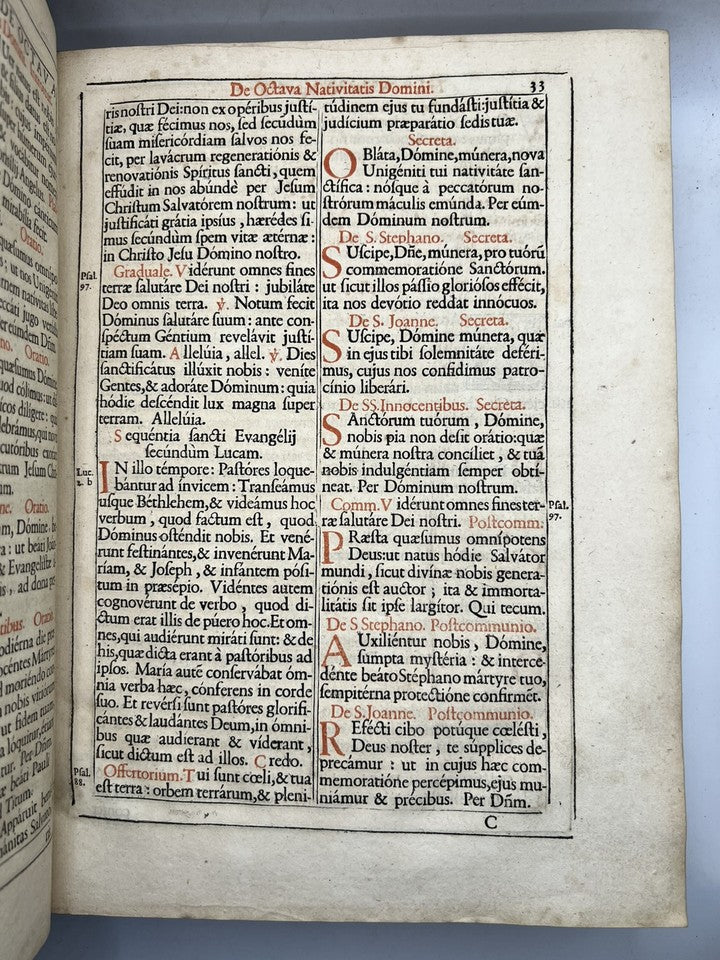 DE OCTAVA
De Octava Nativitatis Domini.
33
ris noſtri Dei: non ex opéribus juſtí-
tiæ, quæ fécimus nos, ſed ſecúdùm
ſuam miſericórdiam ſalvos nos fe-
cit, per lavácrum regeneratiónis &
renovatiónis Spíritus ſancti, quem
effúdit in nos abúndè per Jeſum
Chriſtum Salvatórem noſtrum: ut
juſtificáti grátia ipſíus, hærédes ſi-
mus ſecúndùm ſpem vitæ ætérnæ:
in Chriſto Jeſu Dómino noſtro.
Pſal.
97.
Graduale. Vidérunt omnes fines
terræ ſalutáre Dei noſtri: jubiláte
Deo omnis terra. ℣. Notum fecit
Dóminus ſalutáre ſuum: ante con-
ſpéctum Géntium revelávit juſtí-
tiam ſuam. Allelúia, allel. ℣. Dies
ſanctificátus illúxit nobis: veníte
Gentes, & adoráte Dóminum: quia
hódie deſcéndit lux magna ſuper
terram. Allelúia.
Sequéntia ſancti Evangélij
ſecúndùm Lucam.
Luc.
2. b
IN illo témpore: Paſtóres loque-
bántur ad ínvicem: Tranſeámus
uſque Béthlehem, & videámus hoc
verbum, quod factum eſt, quod
Dóminus oſténdit nobis. Et vené-
runt feſtinántes, & invenérunt Ma-
ríam, & Joſeph, & infántem póſi-
tum in præſépio. Vidéntes autem
cognovérunt de verbo, quod di-
ctum erat illis de púero hoc. Et om-
nes, qui audiérunt miráti ſunt: & de
his, quæ dicta erant à paſtóribus ad
ipſos. María autē conſervábat óm-
nia verba hæc, cónferens in corde
ſuo. Et revérſi ſunt paſtóres glorifi-
cántes & laudántes Deum, in ómni-
bus quæ audíerant & víderant,
ſicut dictum eſt ad illos. Credo.
Pſal.
88.
Offertorium. Tui ſunt cœli, & tua
eſt terra: orbem terrárum, & pleni-
túdinem ejus tu fundáſti: juſtítia &
judícium præparátio ſedis tuæ.
Secreta.
OBláta, Dómine, múnera, nova
Unigéniti tui nativitáte ſan-
ctífica: nóſque à peccatórum no-
ſtrórum máculis emúnda. Per eúm-
dem Dóminum noſtrum.
De S. Stephano. Secreta.
SUſcipe, Dn̄e, múnera, pro tuórū
commemoratióne Sanctórum.
ut ſicut illos páſſio glorióſos effécit,
ita nos devótio reddat innócuos.
De S. Joanne. Secreta.
SUſcipe, Dómine múnera, quæ
in ejus tibi ſolemnitáte deféri-
mus, cujus nos confídimus patro-
cínio liberári.
De SS. Innocentibus. Secreta.
SAnctórum tuórum, Dómine,
nobis pia non deſit orátio: quæ
& múnera noſtra concíliet, & tuā
nobis indulgéntiam ſemper obtí-
neat. Per Dóminum noſtrum.
Comm. Vidérunt omnes fines ter-
ræ ſalutáre Dei noſtri. Poſtcomm.
Pſal.
97.
PRæſta quæſumus omnípotens
Deus: ut natus hódie Salvátor
mundi, ſicut divínæ nobis genera-
tiónis eſt auctor; ita & immorta-
litátis ſit ipſe largítor. Qui tecum.
De S Stephano. Poſtcommunio.
AUxiliéntur nobis, Dómine,
ſumpta myſtéria: & interce-
dénte beáto Stéphano mártyre tuo,
ſempitérna protectióne confírmēt.
De S. Joanne. Poſtcommunio.
REfécti cibo potúque cœléſti,
Deus noſter, te ſúpplices de-
precámur: ut in cujus hæc com-
memoratióne percépimus, ejus mu-
niámur & précibus. Per Dn̄m.
C